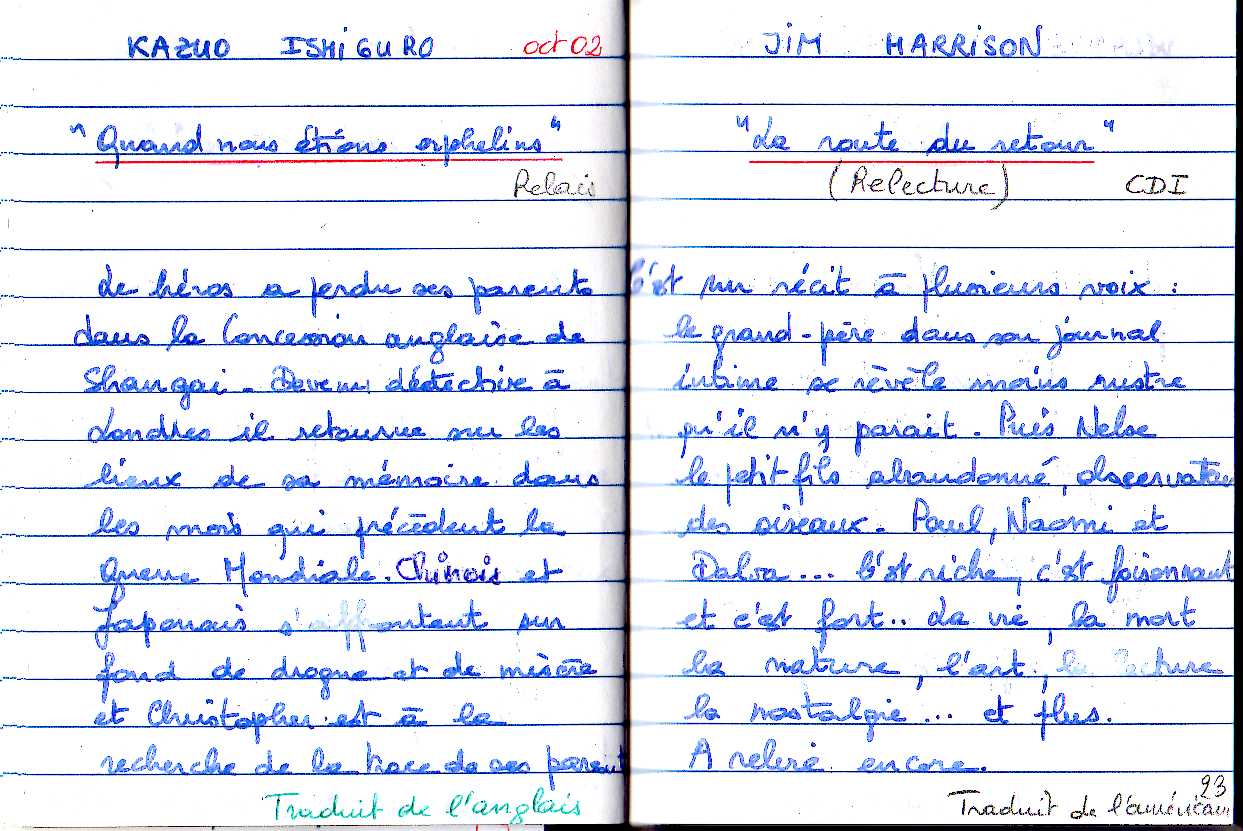 KAZUO ISHIGURO oct 02
"Quand nous étions orphelins"
Relais
Le héros a perdu ses parents
dans la Concession anglaise de
Shangai. Devenu détective à
Londres il retourne sur les
lieux de sa mémoire dans
les mois qui précèdent la
Guerre Mondiale. Chinois et
Japonais s'affrontent sur
fond de drogue et de misère
et Christopher est à la
recherche de la trace de ses parents
Traduit de l'anglais
JIM HARRISON
"La route du retour"
(Relecture) CDI
C'est un récit à plusieurs voix :
le grand-père dans son journal
intime se révèle moins rustre
qu'il n'y parait. Puis Nelse
le petit fils abandonné, observateur
des oiseaux. Paul, Naomi et
Dalva... C'est riche, c'est foisonnant
et c'est fort.. La vie, la mort
la nature, l'art, la lecture
la nostalgie... et plus.
A relire encore.
23
Traduit de l'américain